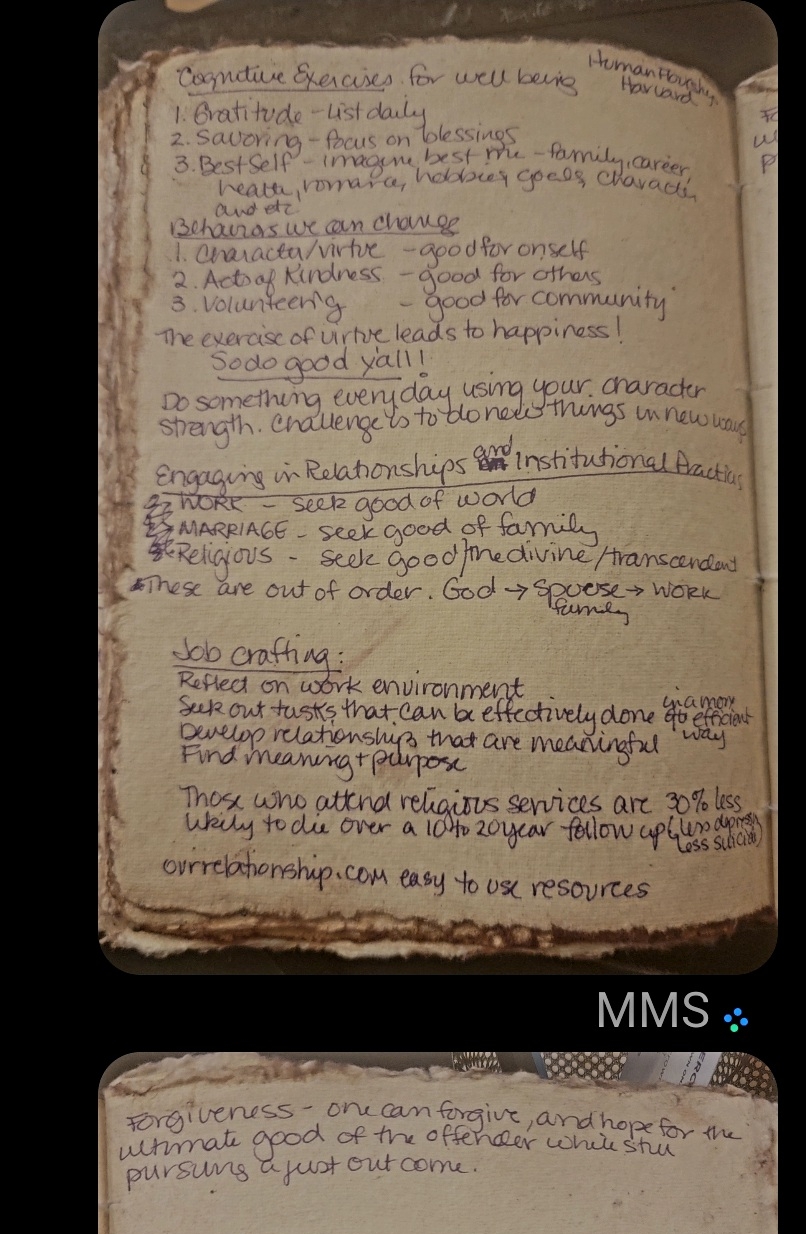 Cognitive Exercises for well being
Human Flourishing
Harvard
1. Gratitude - List daily
2. Savoring - focus on blessings
3. Best Self - imagine best me - family, career,
health, romance, hobbies, goals, character
and etc
Behaviors we can change
1. Character/virtue - good for onself
2. Acts of Kindness - good for others
3. Volunteering - good for community
The exercise of virtue leads to happiness!
So do good y'all!
Do something everyday using your character
strength. Challenge is to do new things in new ways
Engaging in Relationships and Institutional Practices
WORK - seek good of world
MARRIAGE - seek good of family
Religious - seek good/the divine/transcendent
These are out of order. God → Spouse → WORK
family
Job crafting:
Reflect on work environment
Seek out tasks that can be effectively done in a more
efficient
way
Develop relationships that are meaningful
Find meaning + purpose
Those who attend religious services are 30% less
likely to die over a 10 to 20 year follow up (less depression
less suicide)
ourrelationship.com easy to use resources
MMS
Forgiveness - one can forgive, and hope for the
ultimate good of the offender while still
pursuing a just outcome.